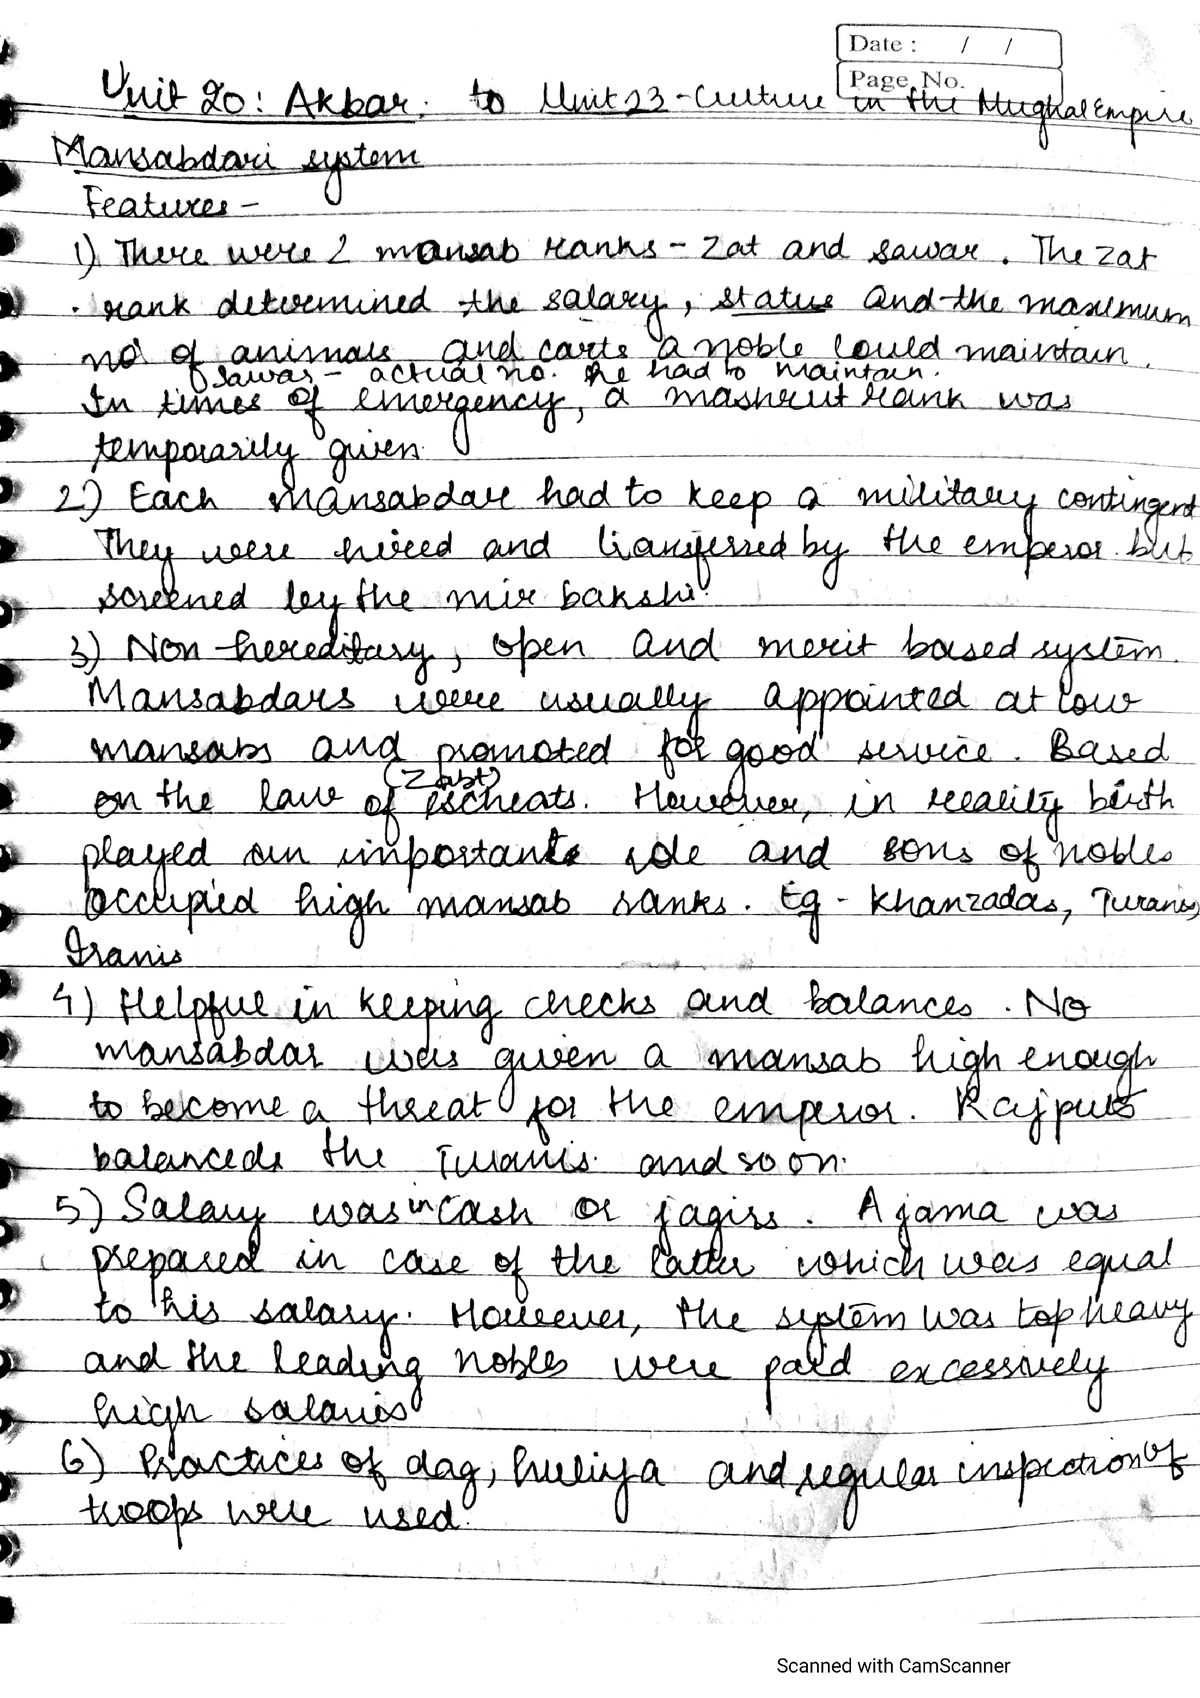 Date :    /    /
Page No.
Unit 20: Akbar. to Unit 23 - Culture in the Mughal Empire
Mansabdari system
Features -
1) There were 2 mansab ranks - zat and sawar. The zat
rank determined the salary, status and the maximum
no of animals and carts a noble could maintain.
Sawar - actual no. he had to maintain.
In times of emergency, a mashrut rank was
temporarily given.
2) Each mansabdar had to keep a military contingent
They were hired and transferred by the emperor but
screened by the mir bakshi.
3) Non-hereditary, open and merit based system.
Mansabdars were usually appointed at low
mansabs and promoted for good service. Based
(Zabt)
on the law of escheats. However, in reality birth
played an important role and sons of nobles
occupied high mansab ranks. Eg - Khanzadas, Turanis,
Iranis
4) Helpful in keeping checks and balances. No
mansabdar was given a mansab high enough
to become a threat for the emperor. Rajputs
balanced the Turanis and so on.
5) Salary was in cash or jagirs. A jama was
prepared in case of the latter which was equal
to his salary. However, the system was top heavy
and the leading nobles were paid excessively
high salaries
6) Practices of dag, huliya and regular inspection of
troops were used.
Scanned with CamScanner